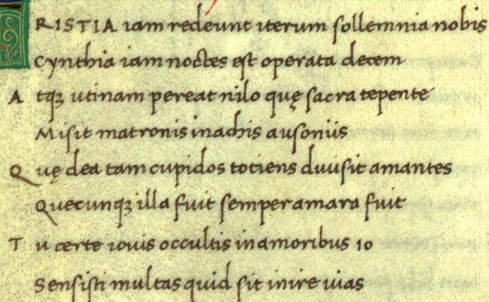 TRISTIA iam redeunt iterum sollemnia nobis
Cynthia iam noctes est operata decem
Atqꝫ utinam pereat nilo quę sacra tepente
Misit matronis inachis ausoniis
Quę dea tam cupidos totiens diuisit amantes
Quecunqꝫ illa fuit semper amara fuit
Tu certe iouis occultis in amoribus io
Sensisti multas quid sit inire uias